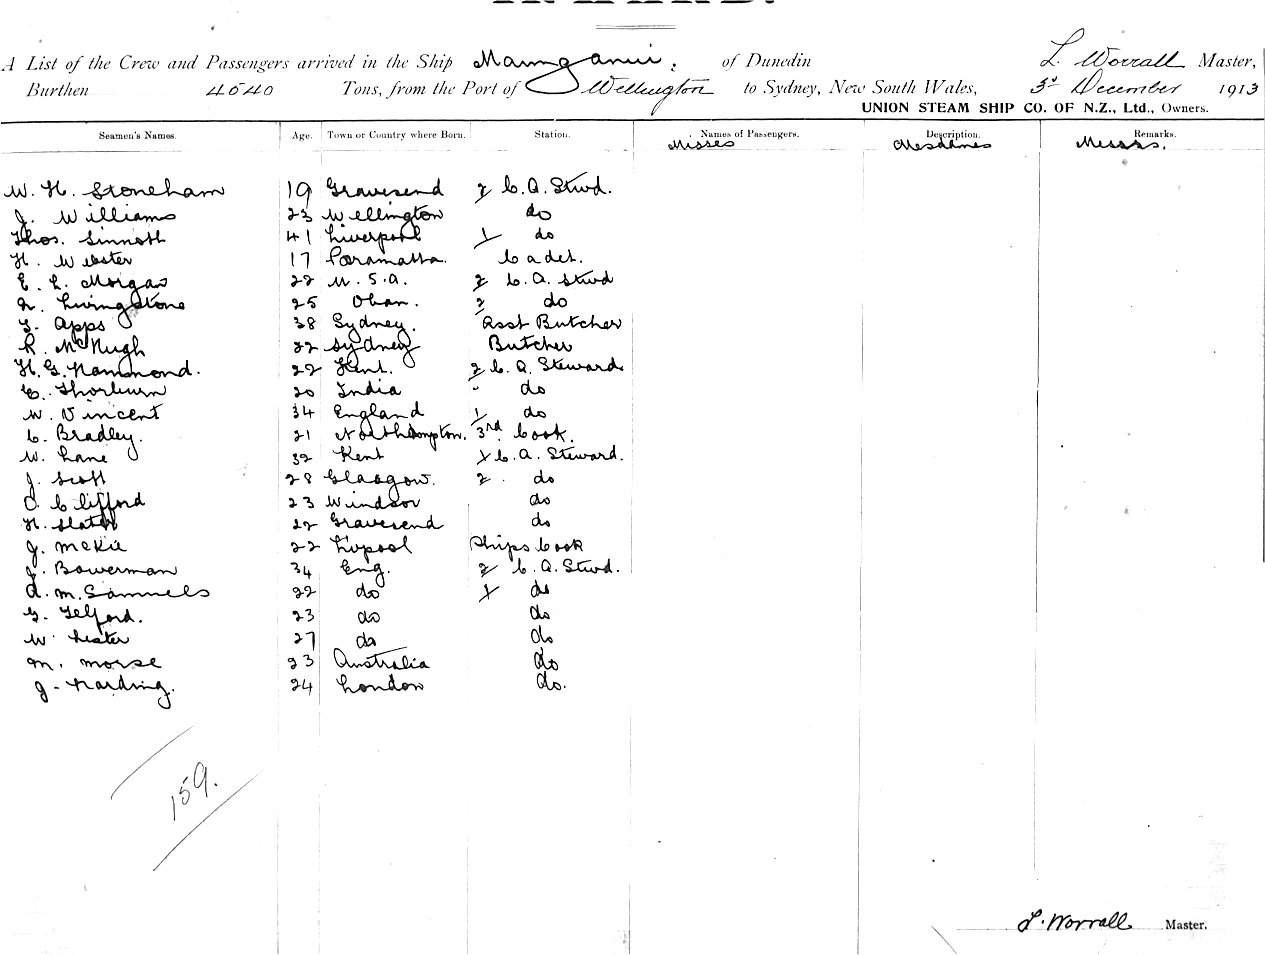 A List of the Crew and Passengers arrived in the Ship Maunganui. of Dunedin L. Worrall Master,
Burthen 4540 Tons, from the Port of Wellington to Sydney, New South Wales, 3rd December 1913
UNION STEAM SHIP CO. OF N.Z., Ltd., Owners.
Seamen's Names. Age. Town or Country where Born. Station. Names of Passengers. Description. Remarks.
Misses Mesdames Messrs.
W. H. Stoneham 19 Gravesend 2 C. A. Stwd.
J. Williams 23 Wellington do
Thos. Sinnott 41 Liverpool 1 do
H. Wester 17 Paramatta. Cadet.
E. L. Morgas 22 U.S.A. 2 C. A. Stwd
N. Livingstone 25 Oban. 2 do
Apps 38 Sydney. Asst Butcher
R. McHugh 32 Sydney Butcher
H. G. Hammond. 22 Kent. 2 C. A. Steward
C. Thorburn 20 India " do
W. Vincent 34 England 1 do
C. Bradley. 21 Northampton. 3rd Cook.
W. Lane 32 Kent 1 C. A. Steward.
J. Scott 28 Glasgow. 2 do
C. Clifford 23 Windsor do
H. Slater 22 Gravesend do
J. McKie 22 L'pool Ships Cook
J. Bowerman 34 Eng. 2 C. A. Stwd.
A. M. Sammels 22 do 1 do
G. Telford. 23 do do
W Lester 27 do do
M. Morse 23 Australia do
J. Harding. 24 London do.
159.
L. Worrall Master.